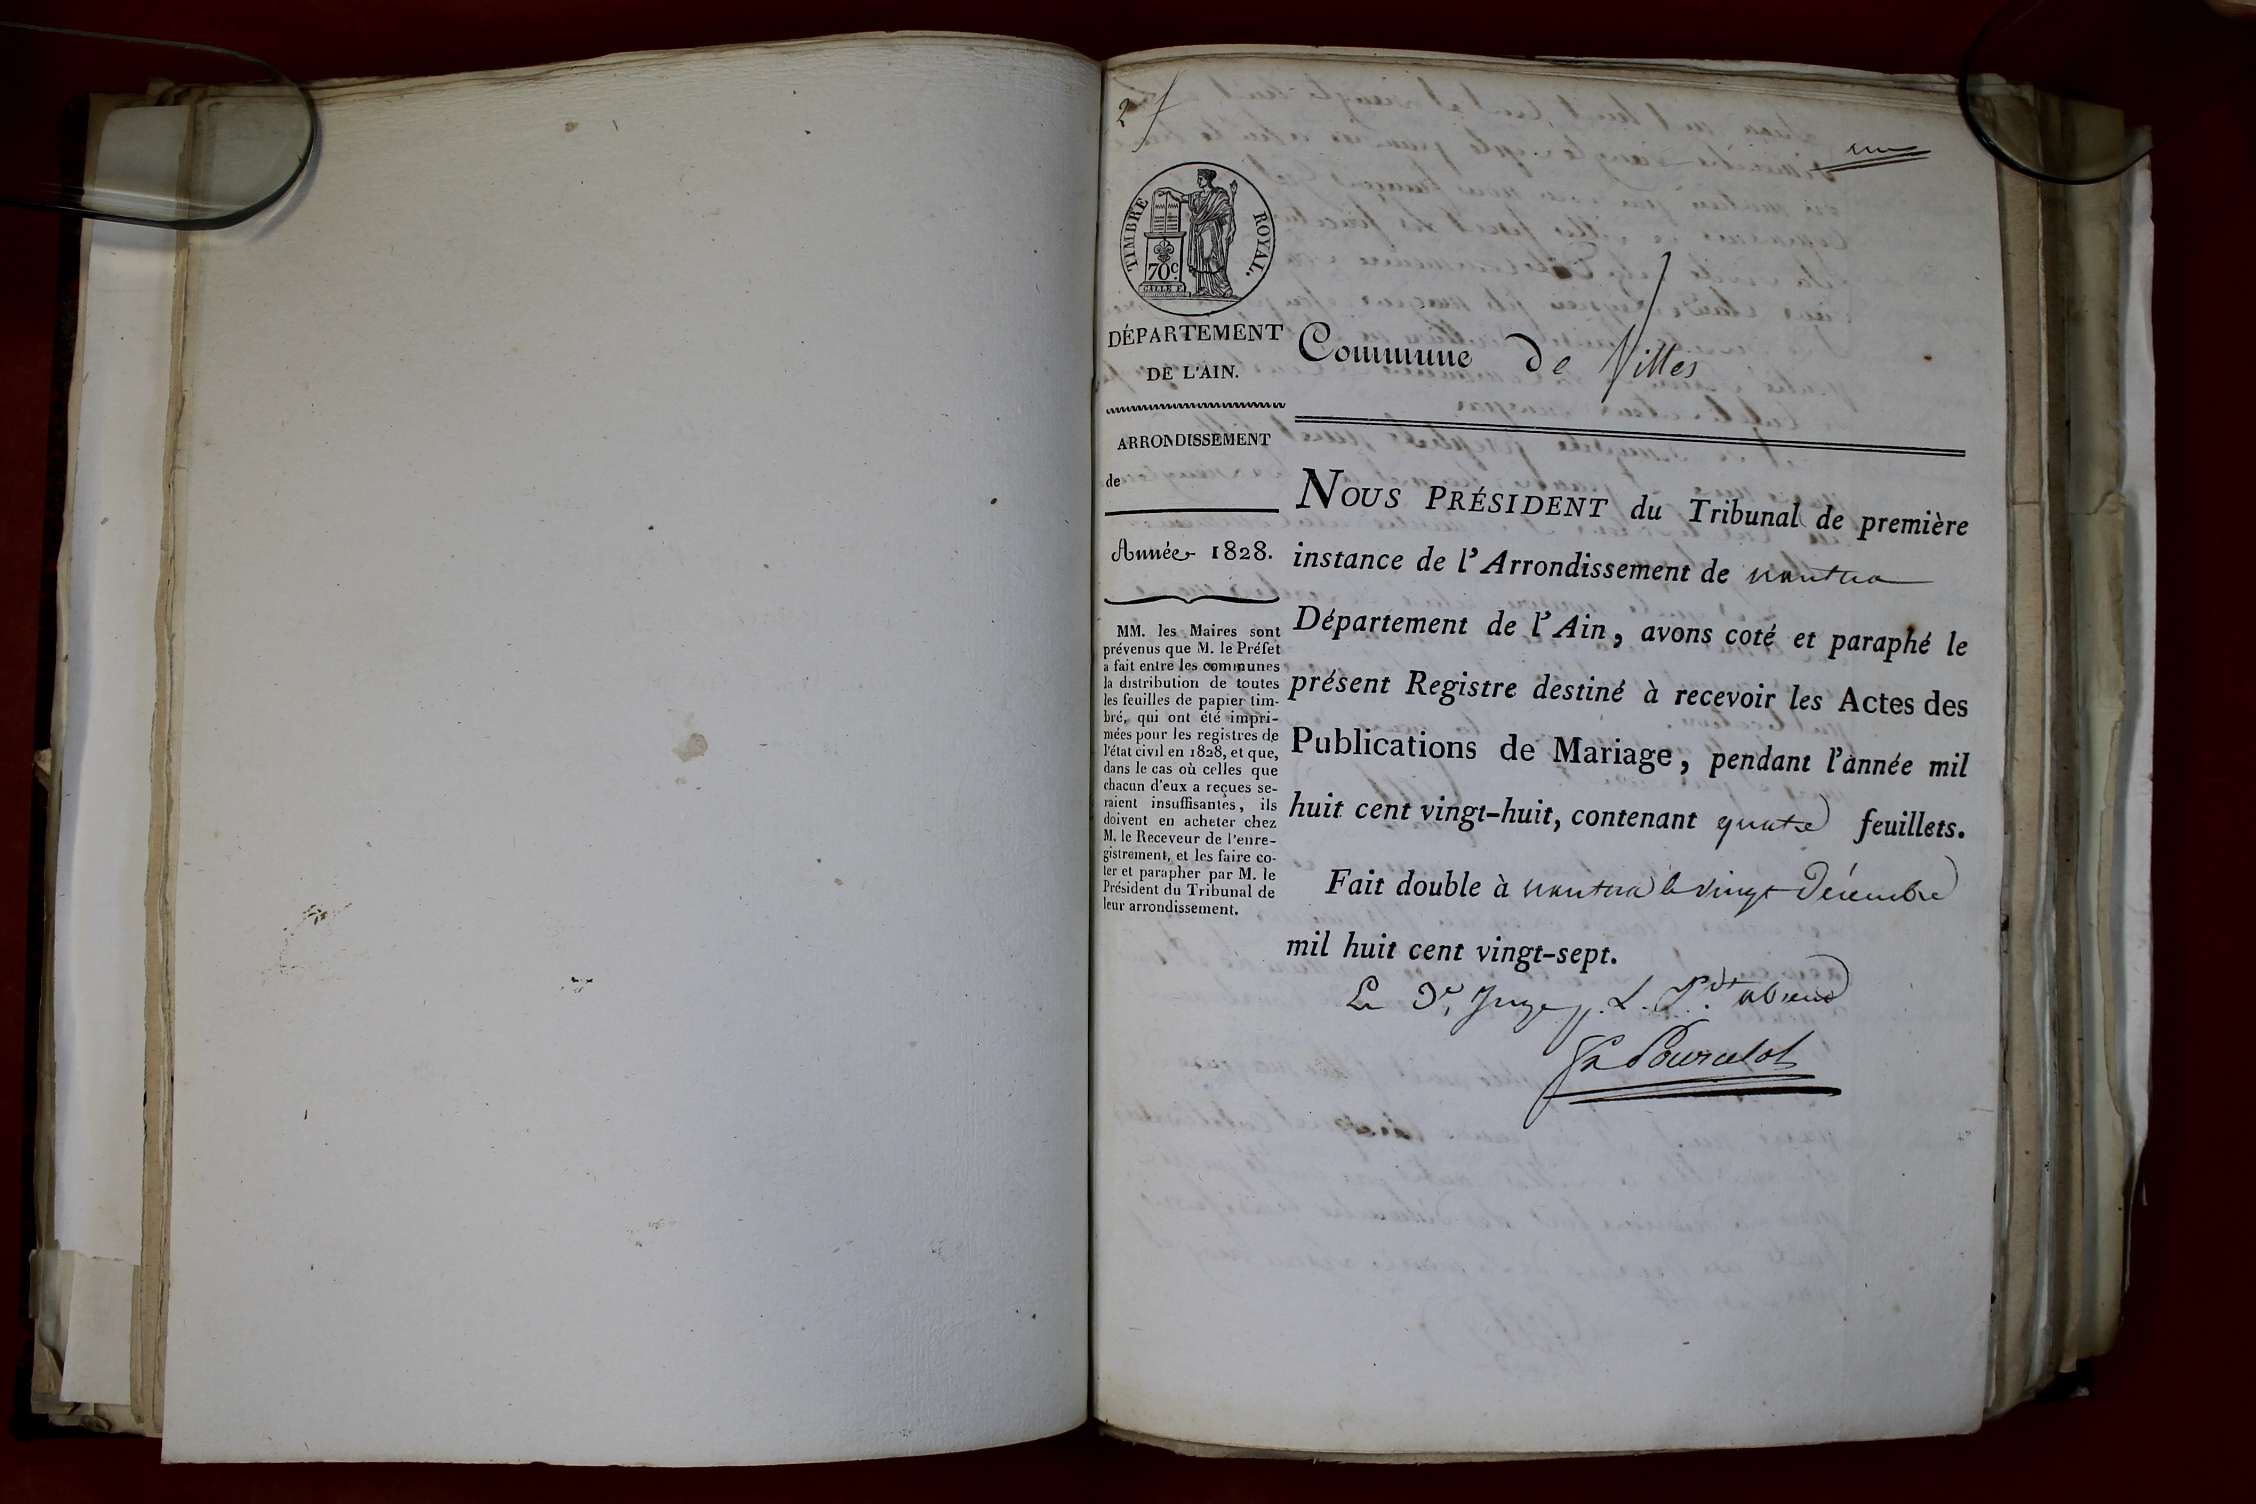 2
un
TIMBRE ROYAL.
70c.
DÉPARTEMENT
DE L'AIN.
ARRONDISSEMENT
de
Année 1828.
MM. les Maires sont
prévenus que M. le Préfet
a fait entre les communes
la distribution de toutes
les feuilles de papier tim-
bré, qui ont été impri-
mées pour les registres de
l'état civil en 1828, et que,
dans le cas où celles que
chacun d'eux a reçues se-
raient insuffisantes, ils
doivent en acheter chez
M. le Receveur de l'enre-
gistrement, et les faire co-
ter et parapher par M. le
Président du Tribunal de
leur arrondissement.
Commune de Villes
NOUS PRÉSIDENT du Tribunal de première
instance de l'Arrondissement de nantua
Département de l'Ain, avons coté et paraphé le
présent Registre destiné à recevoir les Actes des
Publications de Mariage, pendant l'année mil
huit cent vingt-huit, contenant quatre feuillets.
Fait double à nantua le vingt Décembre
mil huit cent vingt-sept.
Le Juge p. L. Pdt absent
Pourcelot